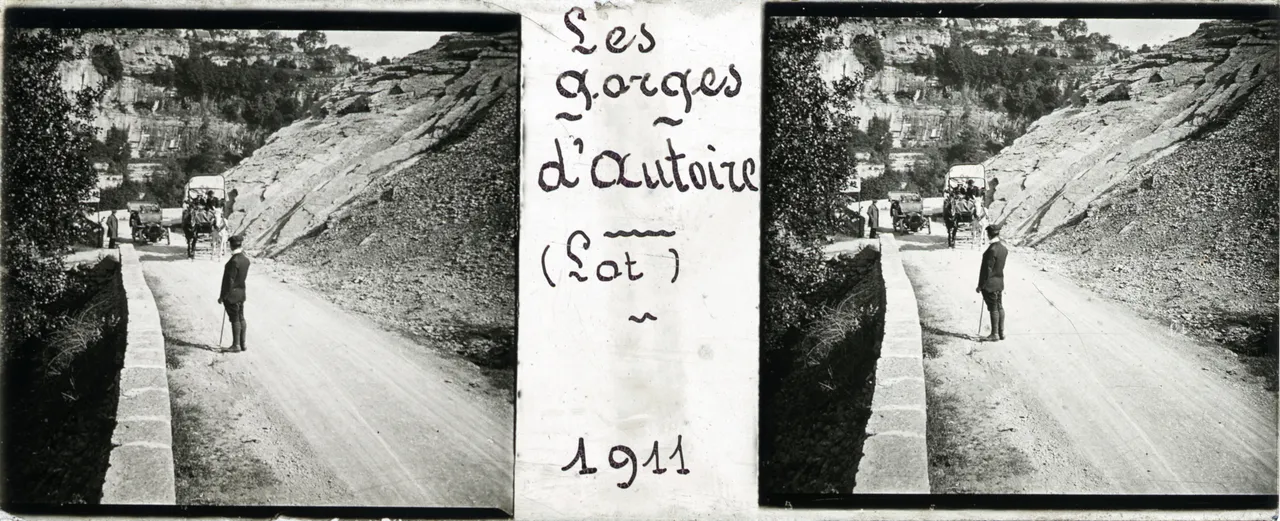 Les
gorges
d'Autoire
(Lot)
1911